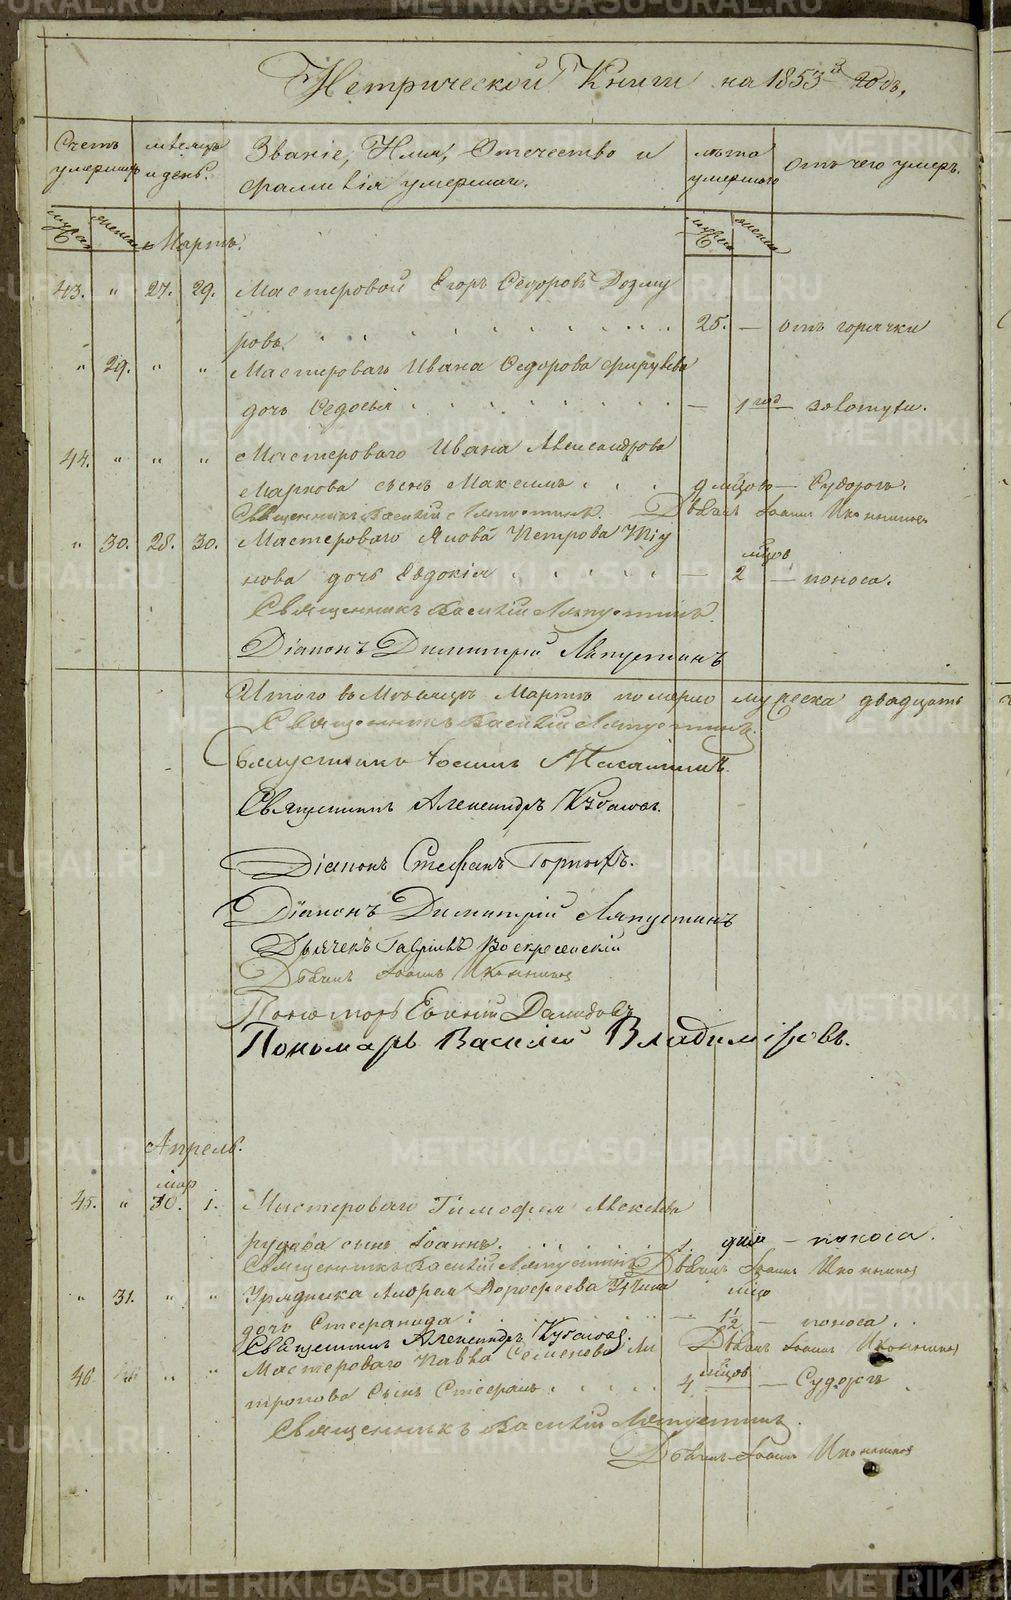 Метрической Книги на 1853й годъ,
Счетъ умершихъ
мѣсяцъ и день.
Званіе, Имя, Отечество и фамилія умершаго.
лѣта умершаго
отъ чего умеръ.
Мартъ.
43. " 27. 29. Мастеровой Егоръ Ѳедоровъ Дозму
ровъ 25. — отъ горячки
" 29. " " Мастероваго Ивана Ѳедорова
дочь Ѳедосья — 1 год — золотухи.
44. " " " Мастероваго Ивана Александрова
Маркова сынъ Максимъ — Судорогъ.
Священникъ Василій Ляпустинъ. Дьячекъ Іоаннъ Иконниковъ
" 30. 28. 30. Мастероваго Якова Петрова
нова дочь Евдокія — 2 мѣсцов — поноса.
Священникъ Василій Ляпустинъ.
Діаконъ Димитрій Ляпустинъ
Итого въ Мѣсяцѣ Мартѣ померло двадцать
Священникъ Василій Ляпустинъ.
Священникъ Александръ
Діаконъ Стефанъ
Діаконъ Димитрій Ляпустинъ
Дьячекъ Гавріилъ Воскресенскій
Дьячекъ Іоаннъ Иконниковъ
Пономарь Евгній Давыдовъ
Пономарь Василій Владиміровъ.
Апрель.
мар
45. " 30. 1. Мастероваго Тимофея Алексѣева
сынъ Іоаннъ. — поноса.
Священникъ Василій Ляпустинъ Дьячекъ Іоаннъ Иконниковъ
" 31. " " Урядника Андрея Дорофеева
дочь Стефанида — 1½ — поноса.
Священникъ Александръ Дьячекъ Іоаннъ Иконниковъ
46. " " Мастероваго Павла Семенова
сынъ Стефанъ 4 мѣсцов — Судорогъ
Священникъ Василій Ляпустинъ.
Дьячекъ Іоаннъ Иконниковъ
METRIKI.GASO-URAL.RU